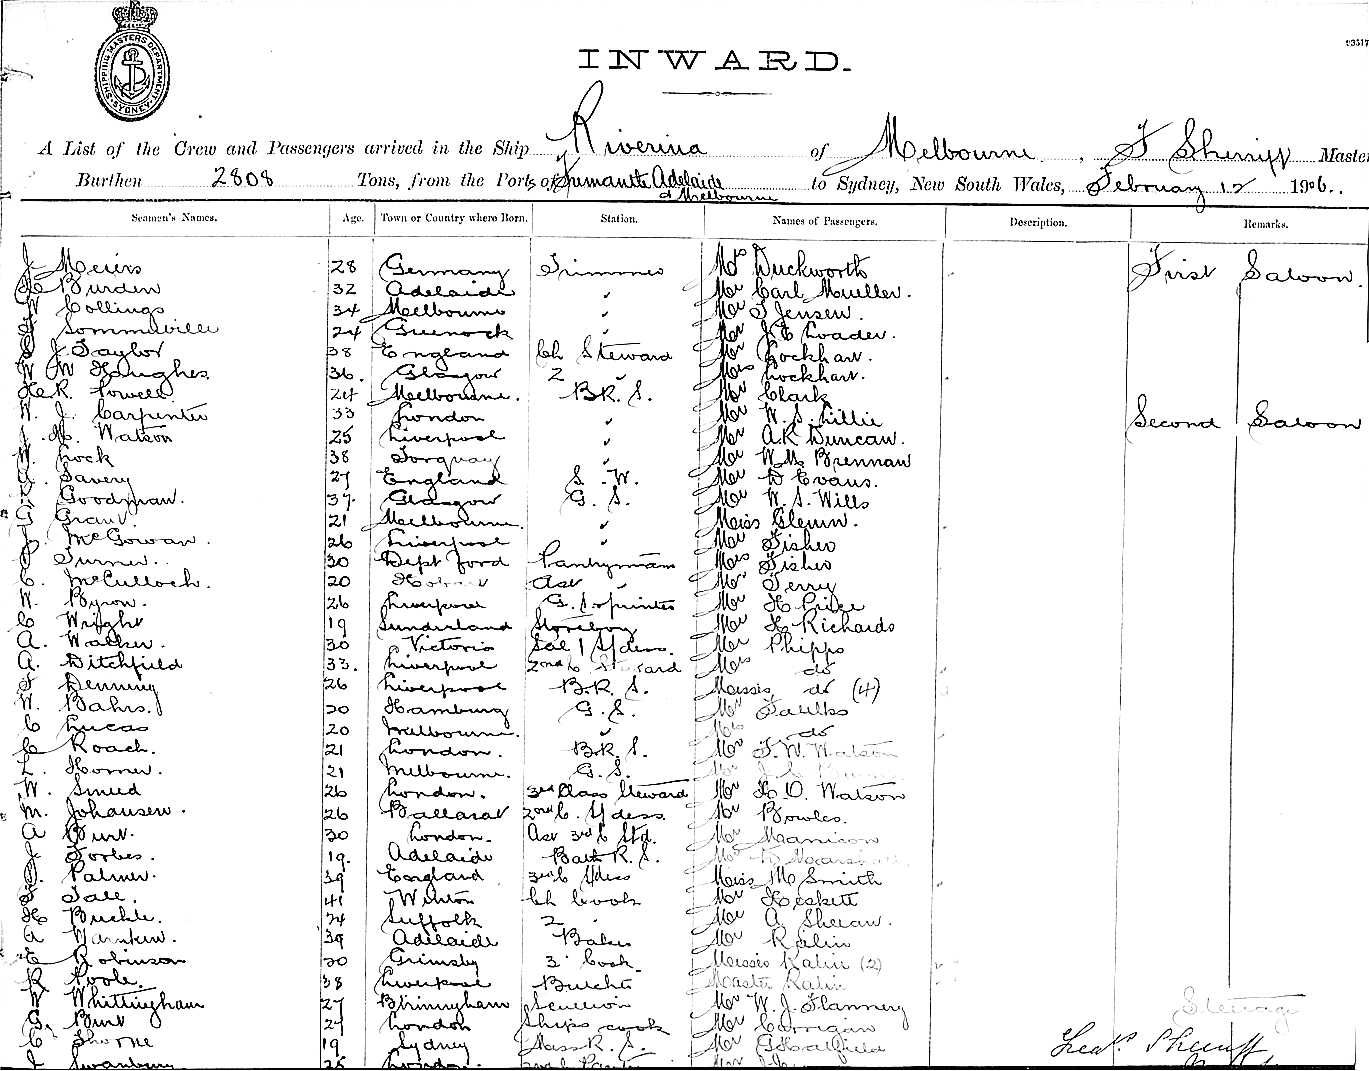 SHIPPING MASTERS DEPARTMENT SYDNEY
93517
INWARD.
A List of the Crew and Passengers arrived in the Ship Riverina of Melbourne, F Sherriff Master
Burthen 2808 Tons, from the Ports of Fremantle Adelaide & Melbourne to Sydney, New South Wales, February 12 1906.
Seamen's Names. Age. Town or Country where Born. Station. Names of Passengers. Description. Remarks.
J Meiers 28 Germany Trimmer Mr Duckworth First Saloon
Burden 32 Adelaide " Mr Carl Mueller.
W Collings 34 Melbourne " Mr T Jensen.
Sommerville 24 Greenock " Mr J E Loader.
J. Taylor 38 England Ch Steward Mr Lockhart.
W W Haughes 36. Glasgow 2 " Mrs Lockhart.
H R. Powell 24 Melbourne. B.R. S. Mr Clark
W. J. Carpenter 33 London " Mr W. S. Lillie Second Saloon
J. H. Watson 25 Liverpool " Mr A.K Duncan.
W. Lock 38 Torquay " Mr W. Brennan
Savery 27 England S. W. Mr D Evans.
Goodman. 37. Glasgow G. S. Mr W. S. Wills
G Grant. 21 Melbourne. " Miss Glenn.
J. McGowan. 26 Liverpool " Mr Fisher
Turner. 30 Dept ford Pantryman Mrs Fisher
C. McCulloch. 20 Ast " Mr Terry
W. Byron. 26 Liverpool Mr H Price
C Wright 19 Sunderland Storeboy Mr H Richards
A. Walker. 30 Victoria Sal 1 S/dess. Mr Phipps
A. Ditchfield 33. Liverpool 2nd C Steward Mrs do
Denning 26 Liverpool B.R. S. Misses do (4)
W. Bahrs. 20 Hamburg G. S. Mr Faulks
C Lucas 20 Melbourne. " Mrs do
C Roach. 21 London. B.R. S. Mr F. W. Watson
L. Horner. 21 Melbourne. G. S.
W. Smed 26 London. 3rd Class Steward Mr H. D. Watson
M. Johansen. 26 Ballarat 2nd C. S/dess. Mr Bowles.
A Burt. 30 London. Ast 3rd C Std. Mr Manison
J Forbes. 19. Adelaide Bath R. S. Mr
J. Palmer. 39 England 3rd C S/dess Miss M Smith
F Tall. 41 Winton Ch Cook Mr Heskett
H Buckle. 24 Suffolk 2 " Mr A Sheran.
A 39 Adelaide Baker Mr Kalin
E Robinson 30 Grimsby 3 Cook. Misses Kalin (2)
R Poole. 38 Liverpool Butcher Master Kalin
W Whittingham 27 Birmingham Scullion Mr W. J. Flannery Steerage
G. Burt 27 London Ships cook Mr Corrigan
C Thorne 19 Sydney Mess R. S. Mr G Hatfield Sherriff
J Swanbury 25 London